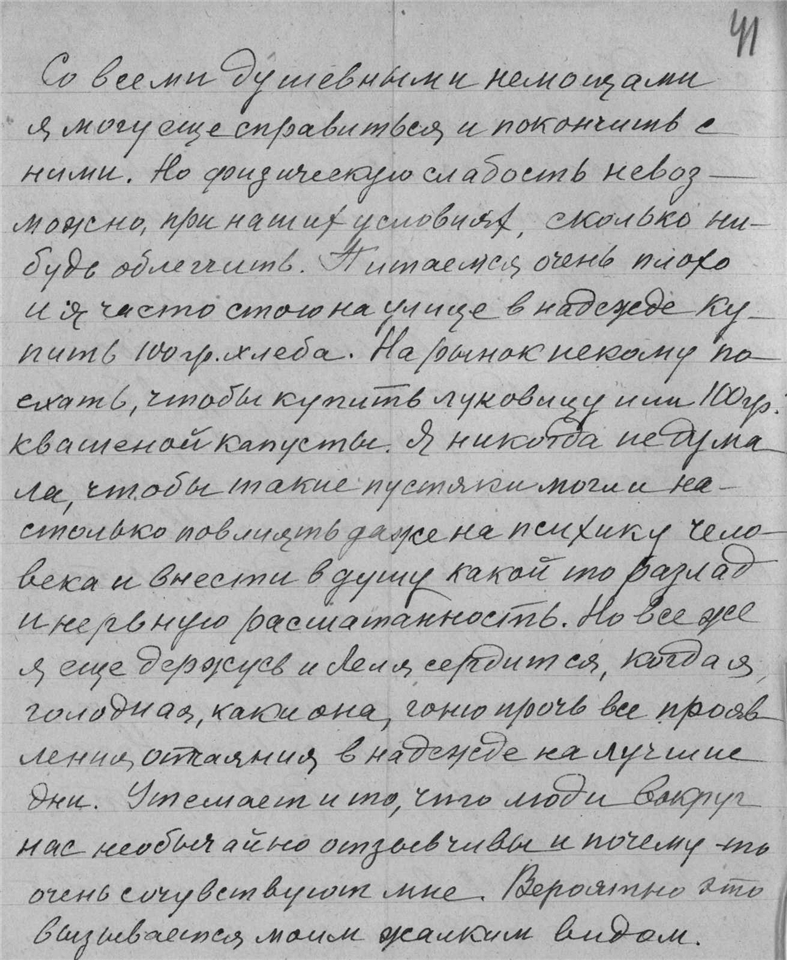 41
Со всеми душевными немощами
я могу еще справиться и покончить с
ними. Но физическую слабость невоз—
можно, при наших условиях, сколько ни-
будь облегчить. Питаемся очень плохо
и я часто стою на улице в надежде ку-
пить 100 гр. хлеба. На рынок некому по-
ехать, чтобы купить луковицу или 100 гр.
квашеной капусты. Я никогда не дума
ла, чтобы такие пустяки могли на-
столько повлиять даже на психику чело-
века и внести в душу какой то разлад
и нервную расшатанность. Но все же
я еще держусь и Леля сердится, когда я,
голодная, как и она, гоню прочь все прояв
ления отчаяния в надежде на лучшие
дни. Утешает и то, что люди вокруг
нас необычайно отзывчивы и почему-то
очень сочувствуют мне. Вероятно это
вызывается моим жалким видом.